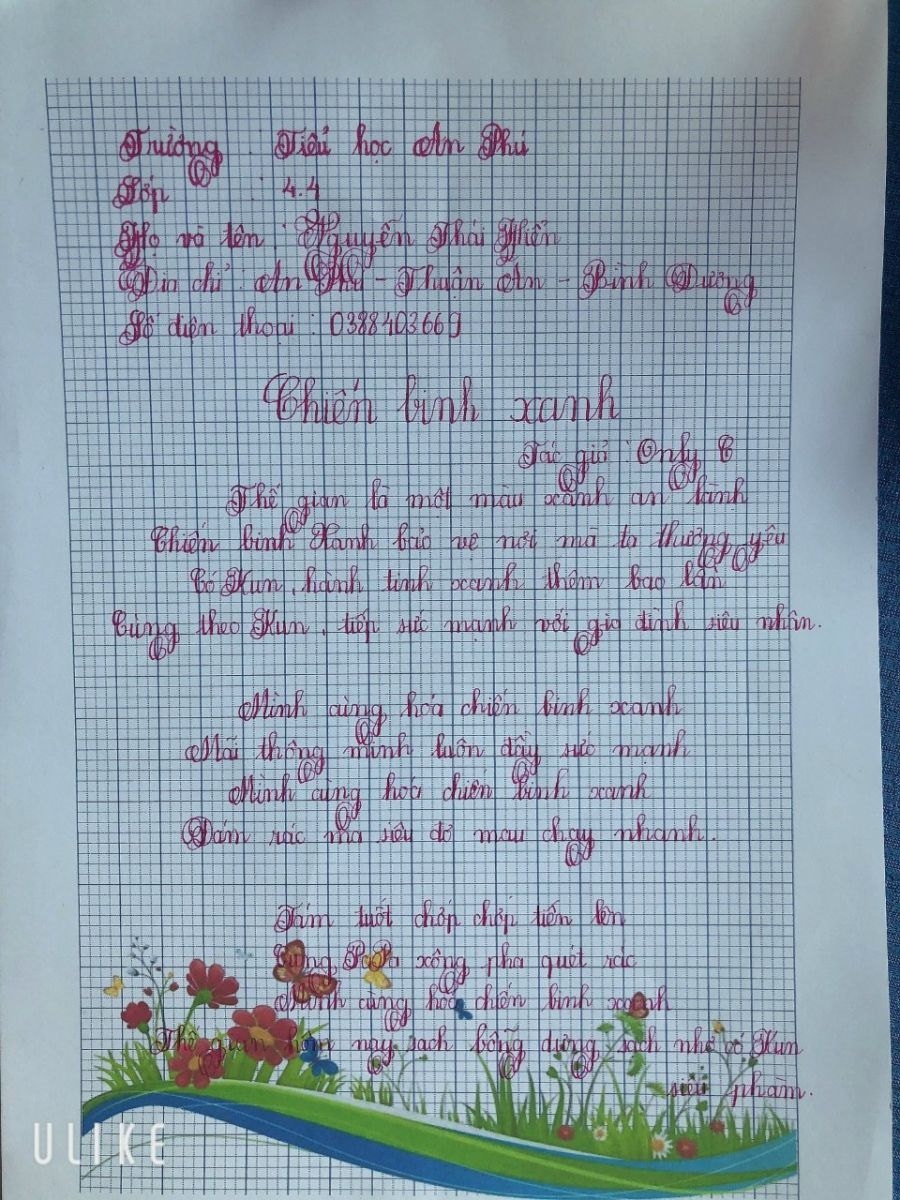 Trường : Tiểu học An Phú
Lớp : 4.4
Họ và tên : Nguyễn Thái Hiền
Địa chỉ : An Phú - Thuận An - Bình Dương
Số điện thoại : 0388403669
Chiến binh xanh
Tác giả : Only C
Thế gian là một màu xanh an lành
Chiến binh Xanh bảo vệ nơi mà ta thương yêu
Có Kun, hành tinh xanh thêm bao lần
Cùng theo Kun, tiếp sức mạnh với gia đình siêu nhân.
Mình cùng hóa chiến binh xanh
Mãi thông minh luôn đầy sức mạnh
Mình cùng hóa chiến binh xanh
Đám rác ma siêu dơ mau chạy nhanh.
Tám tuốt chớp chớp tiến lên
Cùng PaPa xông pha quét rác
Mình cùng hóa chiến binh xanh
Thế gian hôm nay sạch bỗng dưng sạch nhờ có Kun
siêu phàm.
ULIKE